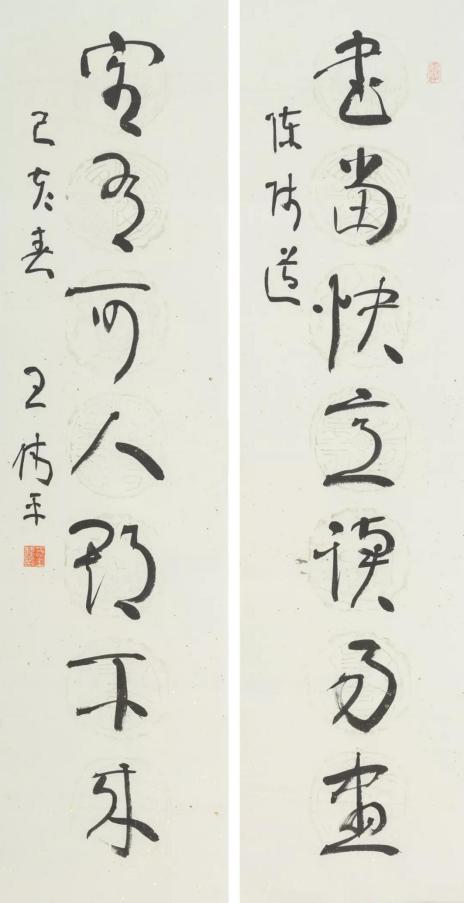 書當快意讀易盡
陳師道
客有可人期不來
己亥春 王偉平